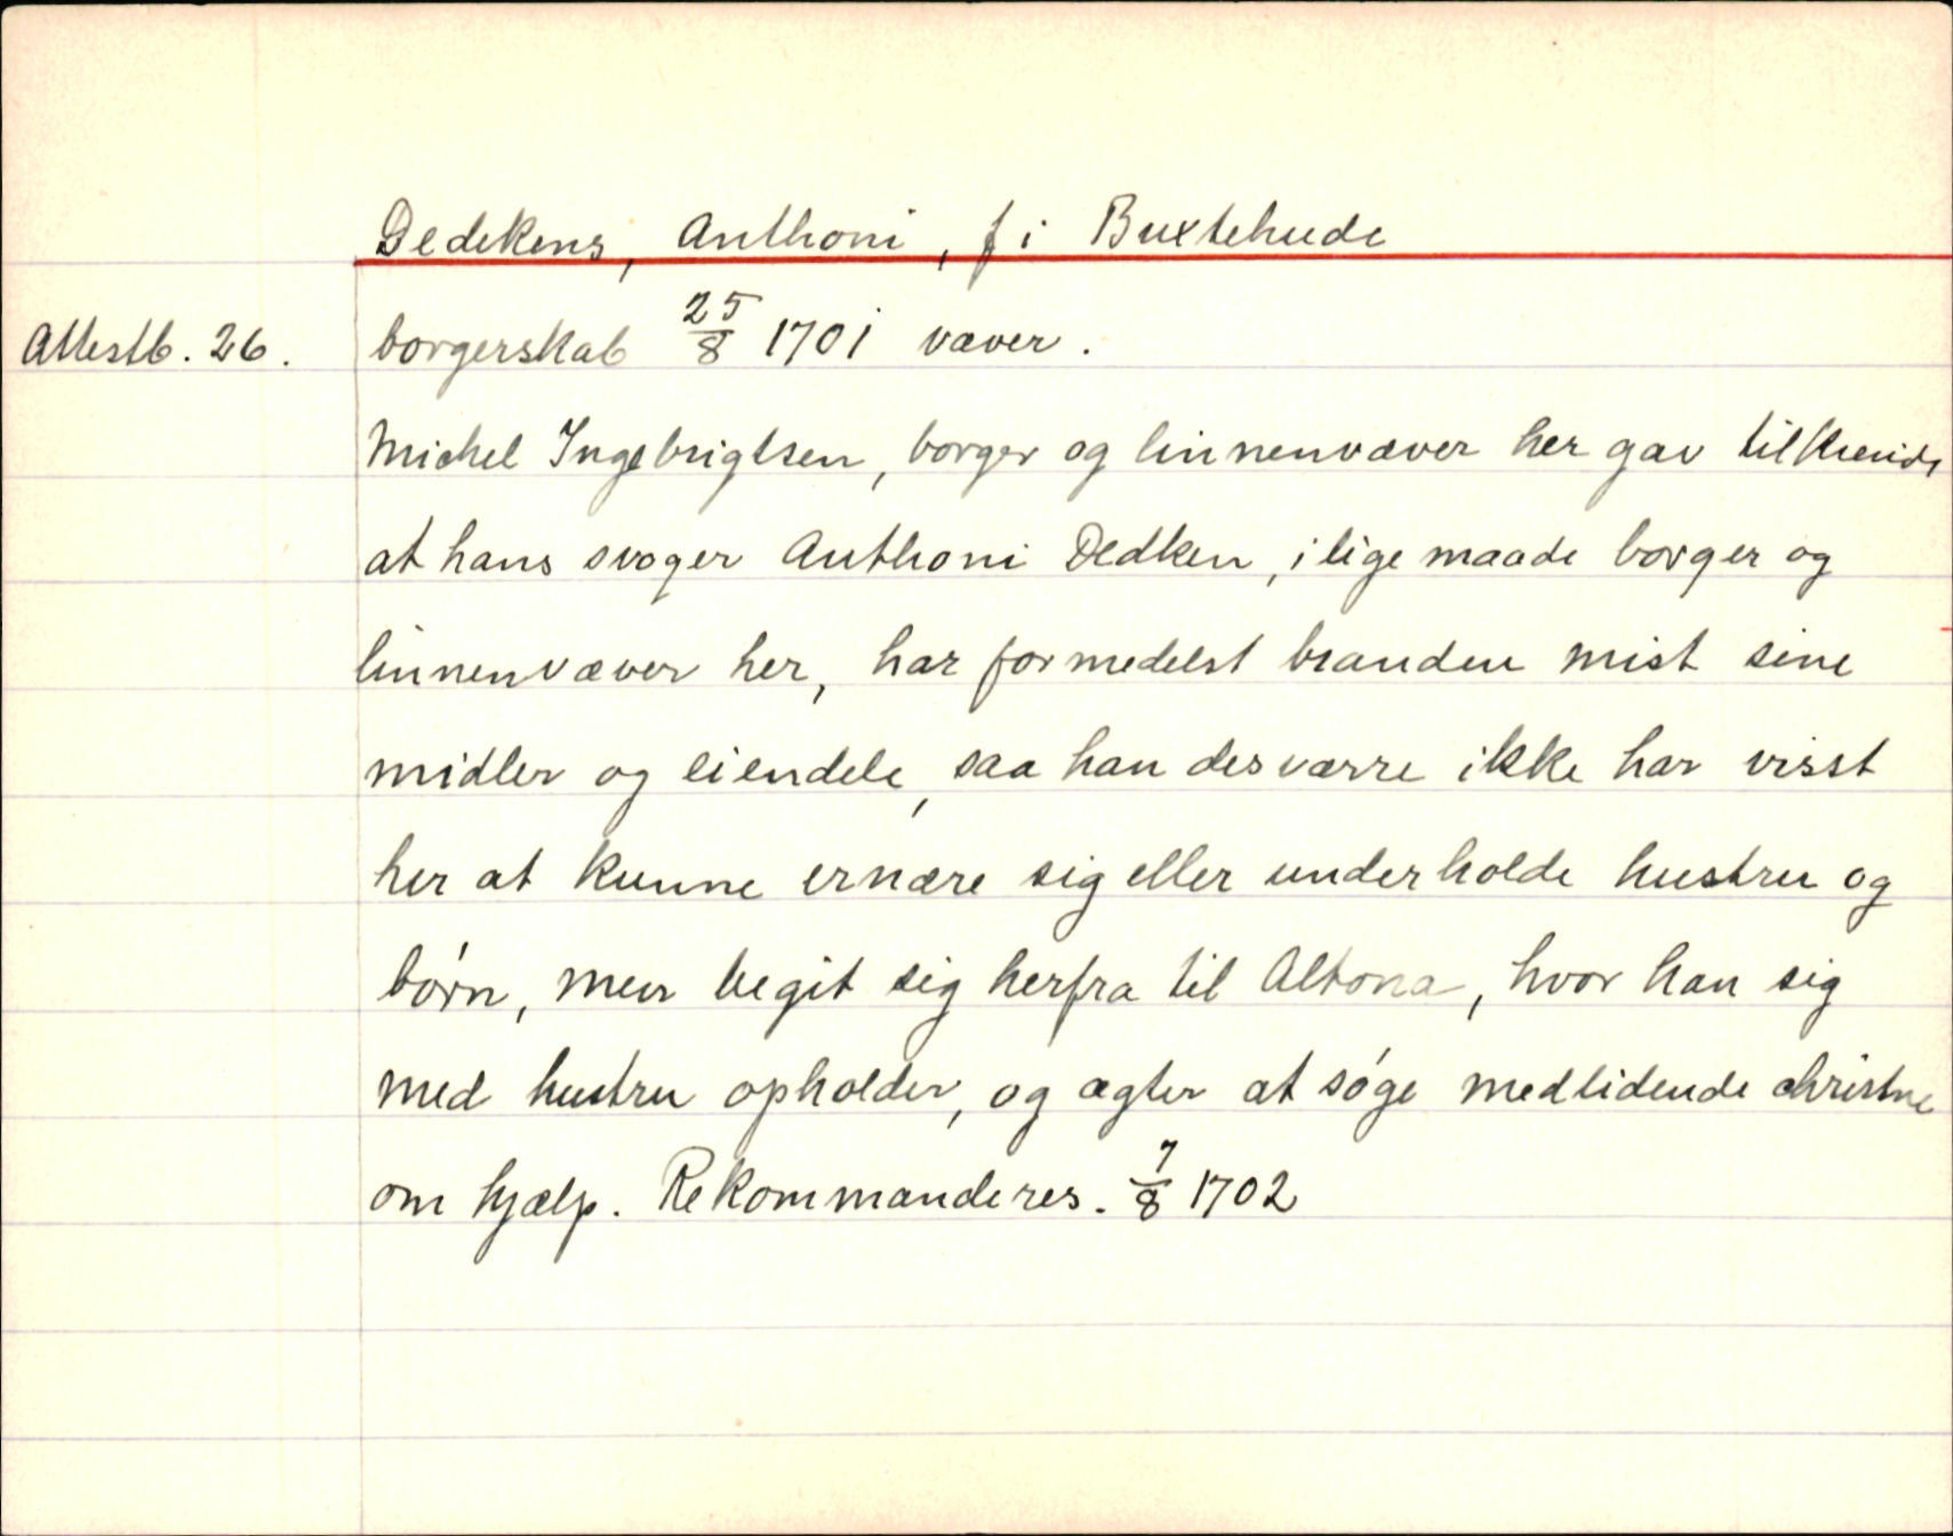 Dedekens, Anthoni, f i Buxtehude
Attestb. 26. borgerskab 25/8 1701 væver.
Michel Ingebrigtsen, borger og linnenvæver her gav tilkiende
at hans svoger Anthoni Dedken, i lige maade borger og
linnenvæver her, har formedelst branden mist sine
midler og eiendele, saa han desværre ikke har visst
her at kunne ernære sig eller underholde hustru og
børn, men begit sig herfra til Altona, hvor han sig
med hustru opholder, og agter at søge medlidende christne
om hjælp. Rekommanderes. 7/8 1702